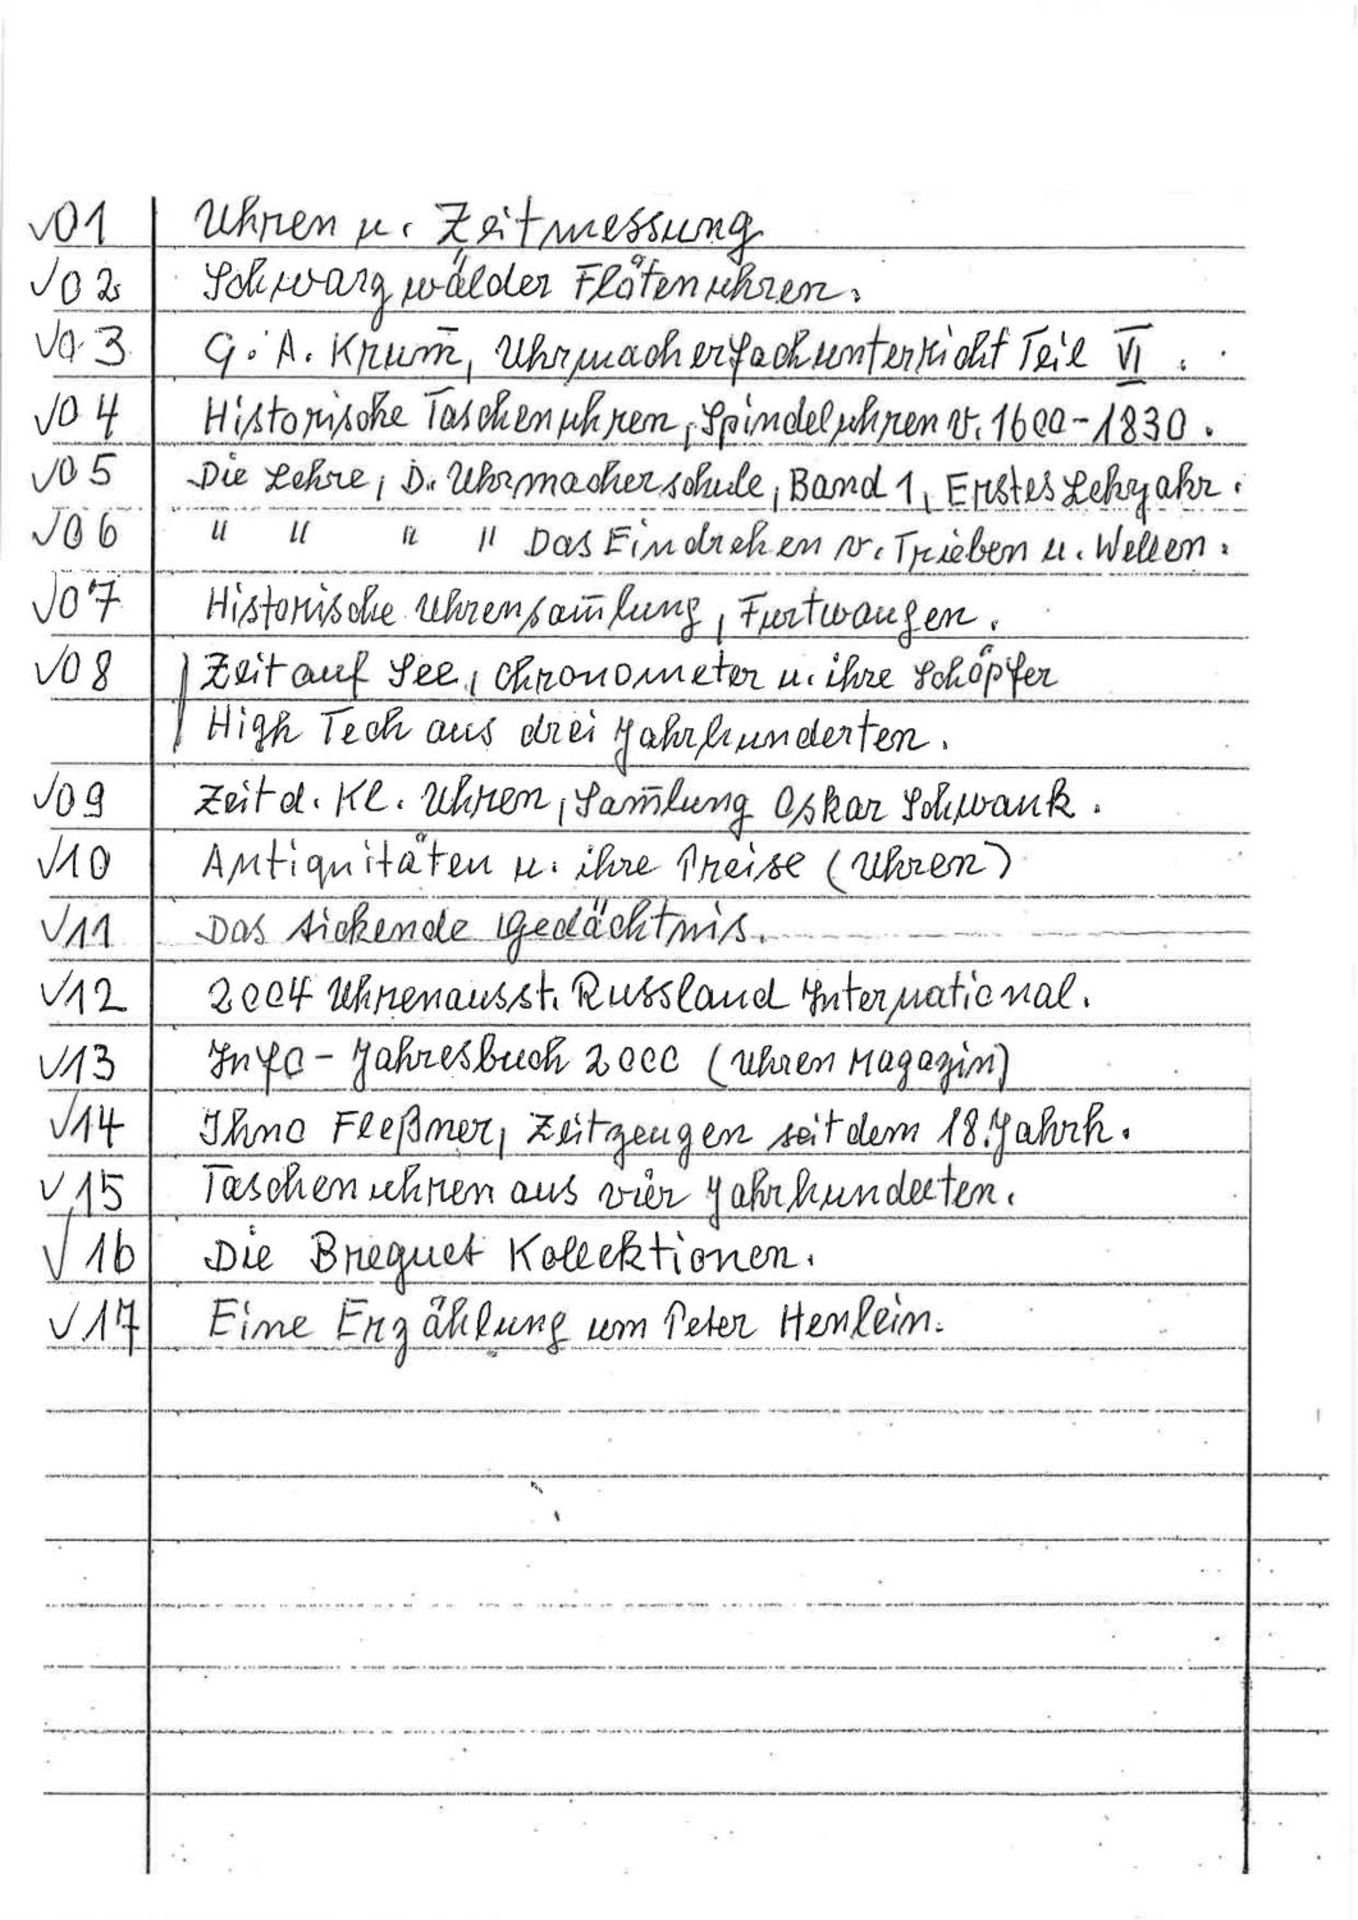 √01 Uhren u. Zeitmessung
√02 Schwarzwälder Flötenuhren.
√03 G. A. Krum̄, Uhrmacherfachunterricht Teil VI.
√04 Historische Taschenuhren, Spindeluhren v. 1600-1830.
√05 Die Lehre, D. Uhrmacherschule, Band 1, Erstes Lehrjahr.
√06 " " " " Das Eindrehen v. Trieben u. Wellen.
√07 Historische Uhrensam̄lung, Furtwangen.
√08 Zeit auf See, Chronometer u. ihre Schöpfer
High Tech aus drei Jahrhunderten.
√09 Zeit d. Kl. Uhren, Sam̄lung Oskar Schwank.
√10 Antiquitäten u. ihre Preise (Uhren)
√11 Das tickende Gedächtnis.
√12 2004 Uhrenausst. Russland International.
√13 Info - Jahresbuch 2000 (Uhren Magazin)
√14 Ihno Fleßner, Zeitzeugen seit dem 18. Jahrh.
√15 Taschenuhren aus vier Jahrhunderten.
√16 Die Breguet Kollektionen.
√17 Eine Erzählung um Peter Henlein.